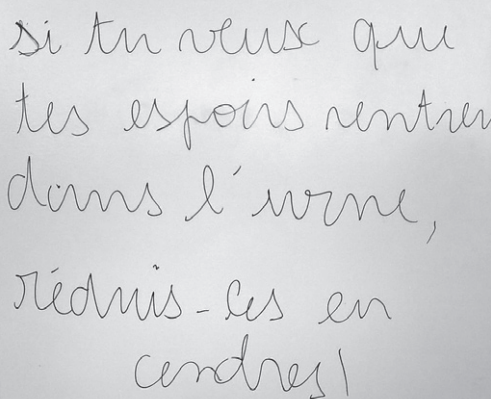 si tu veux que
tes espoirs rentren
dans l'urne,
réduis-les en
cendres!